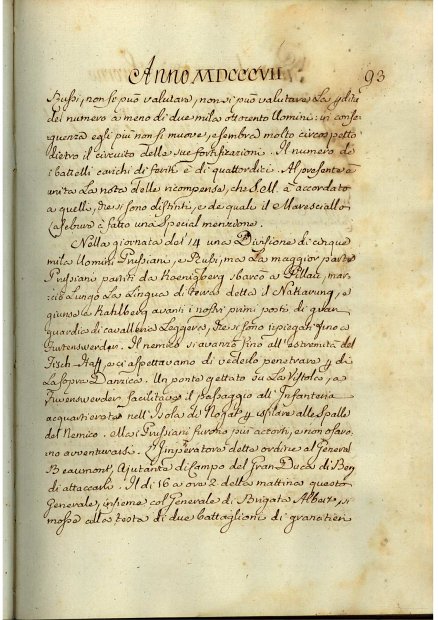 Anno MDCCCVII. 93
Russi, non se può valutare, non si può valutare la pdita
del numero a meno di due mila ottocento Uomini: in conse
guenza egli più non si muove, e sembra molto circospetto
dietro il circuito delle sue fortificazioni. Il numero de
i battelli carichi di feriti è di quattordici. Al presente è
unita la nota delle ricompense, che S.M. à accordato
a quelli, che si sono distinti, e de quali il Maresciallo
à fatto una special menzione.
Nella giornata del 14 una Divisione di cinque
mila Uomini Prussiani, e Russi, ma la maggior parte
Prussiani partiti da Koenigberg sbarcò a Pillau, mar-
ciò lungo la lingua di terra detta il e
giunse a Kahlberg avanti i nostri primi posti di gran
guardia di cavalleria leggera, che si sono ripiegati fino a
Furtenswerder. Il nemico si avanzò fino all'estremità del
Frisch-Haff, e ci aspettavamo di vederlo penetrare p di
là sopra Danzica. Un ponte gettato su la Vistola, a
facilitava il passaggio all'Infanteria
acquartierata nell'Isola di Nogat p sfilare alle Spalle
del Nemico. Ma i Prussiani furono più accorti, e non osaro-
no avventurarsi. L'Imperatore dette ordine al General
Beaumont, Ajutante di Campo del Gran Duca di Berg
di attaccarli. Il dì 16 a ore 2 della mattina questo
Generale, insieme col Generale di Brigata Albert, si
mosse alla testa di due battaglioni di granatieri